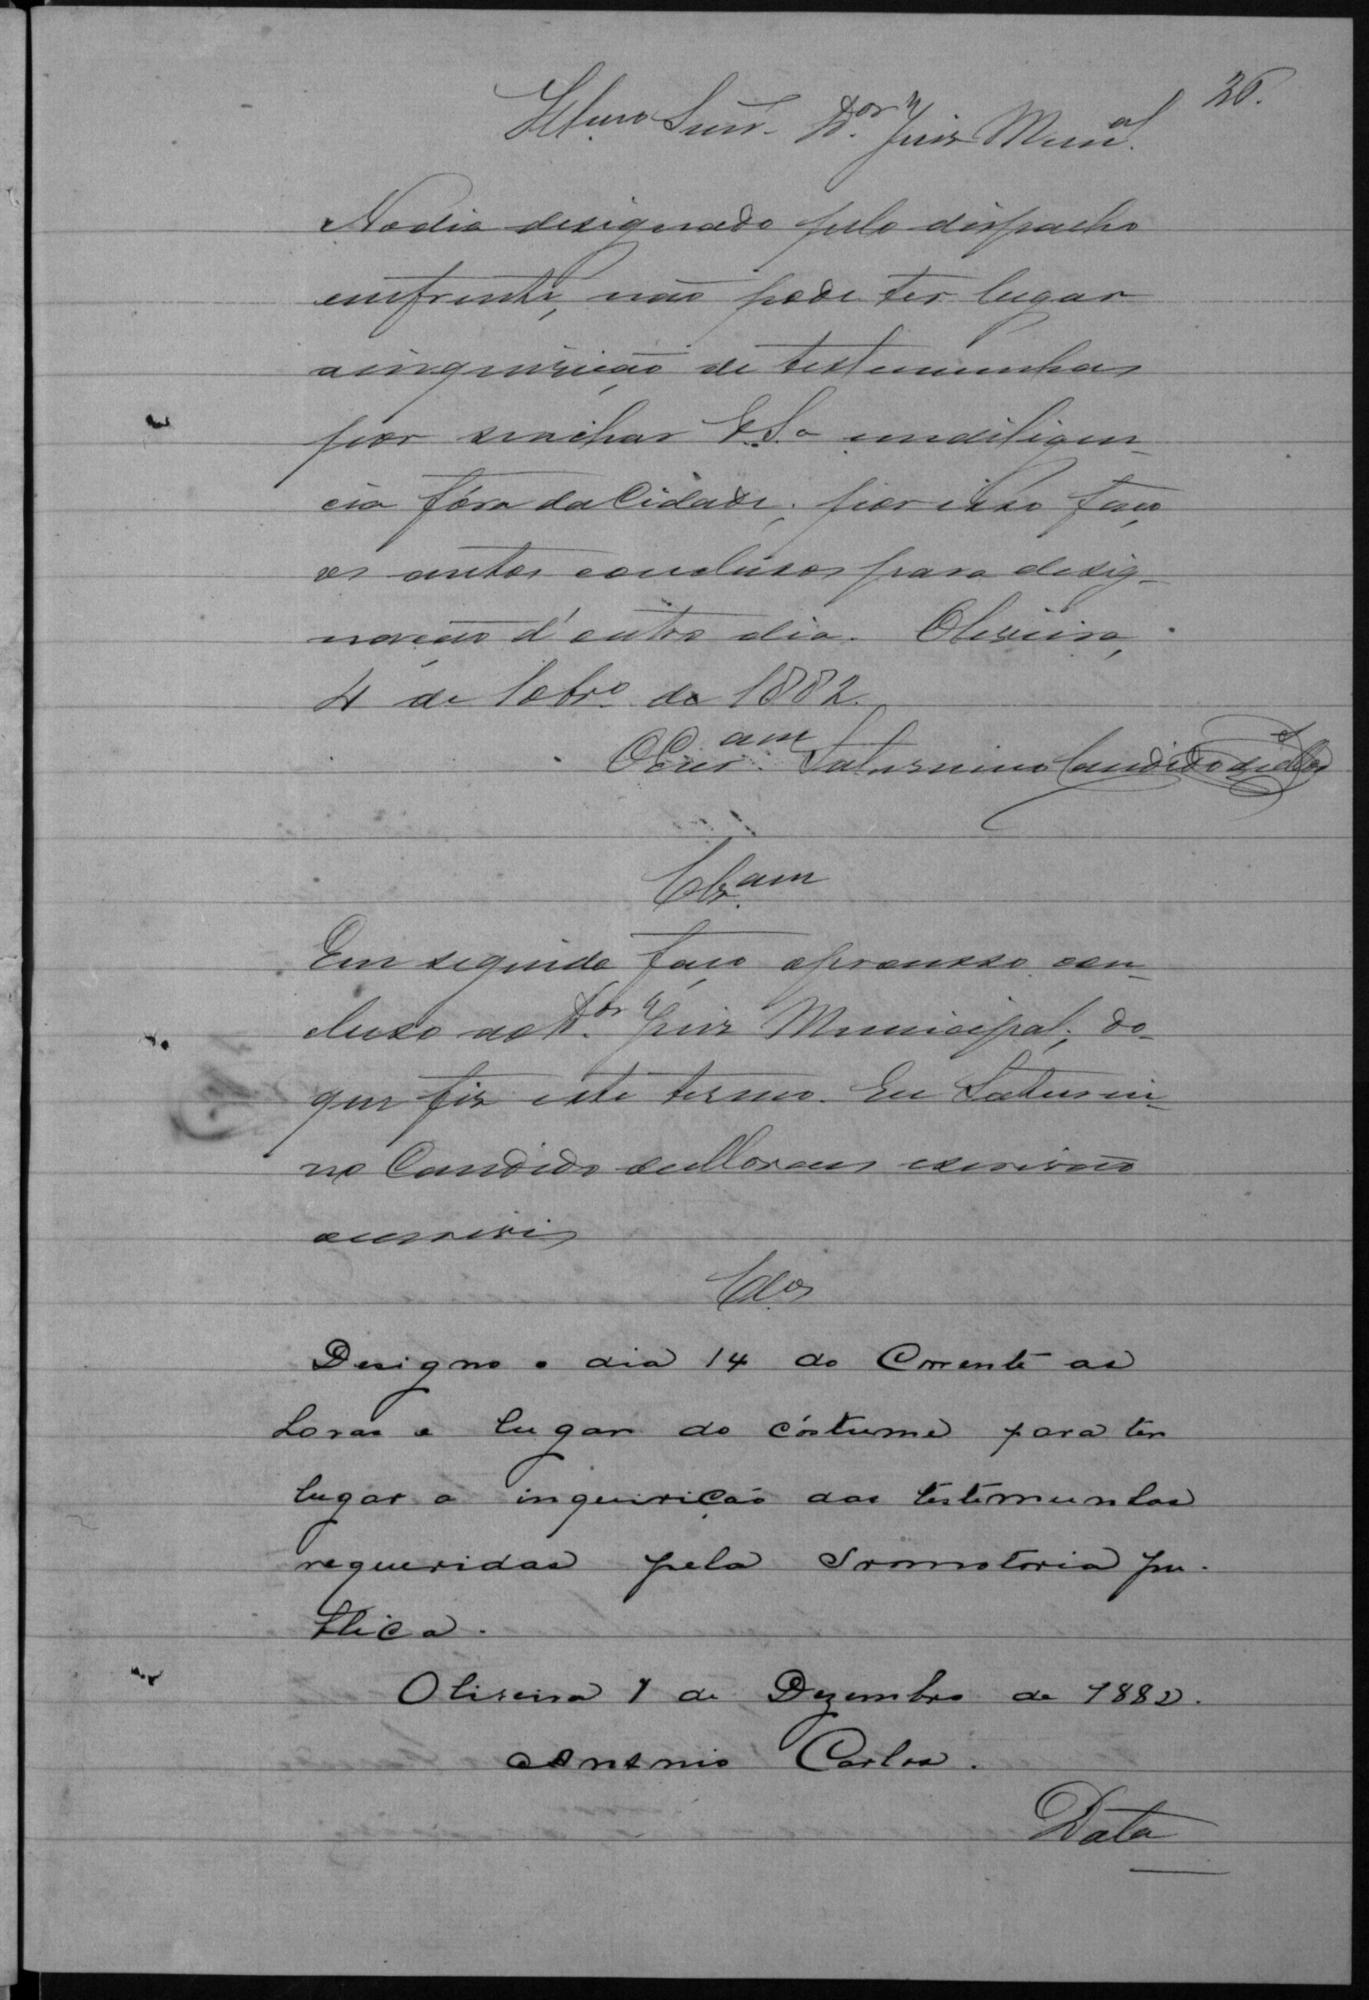 26.
Illmo Senr. Dor. Juiz Munal.
No dia designado pelo despacho
emfrente, não pôde ter lugar
a inquirição de testemunhas
por se achar V. Sa. em diligen-
cia fóra da Cidade; por isso faço
os autos conclusos para desig-
nação d'outro dia. Oliveira,
4 de 10brº. de 1882.
O Escram. Saturnino Candido de Mos
Clzam
Em seguida faço o processo con-
cluso ao Dor. Juiz Municipal; do
que fiz este termo. Eu Saturni-
no Candido de Moraes escrivão
escrevi
Clos
Designo o dia 14 do Corrente as
horas e lugar do cóstume para ter
lugar a inquirição das testemunhas
requeridas pela Promotoria pu-
blica.
Oliveira 7 de Dezembro de 1882.
Antonio Carlos.
Data